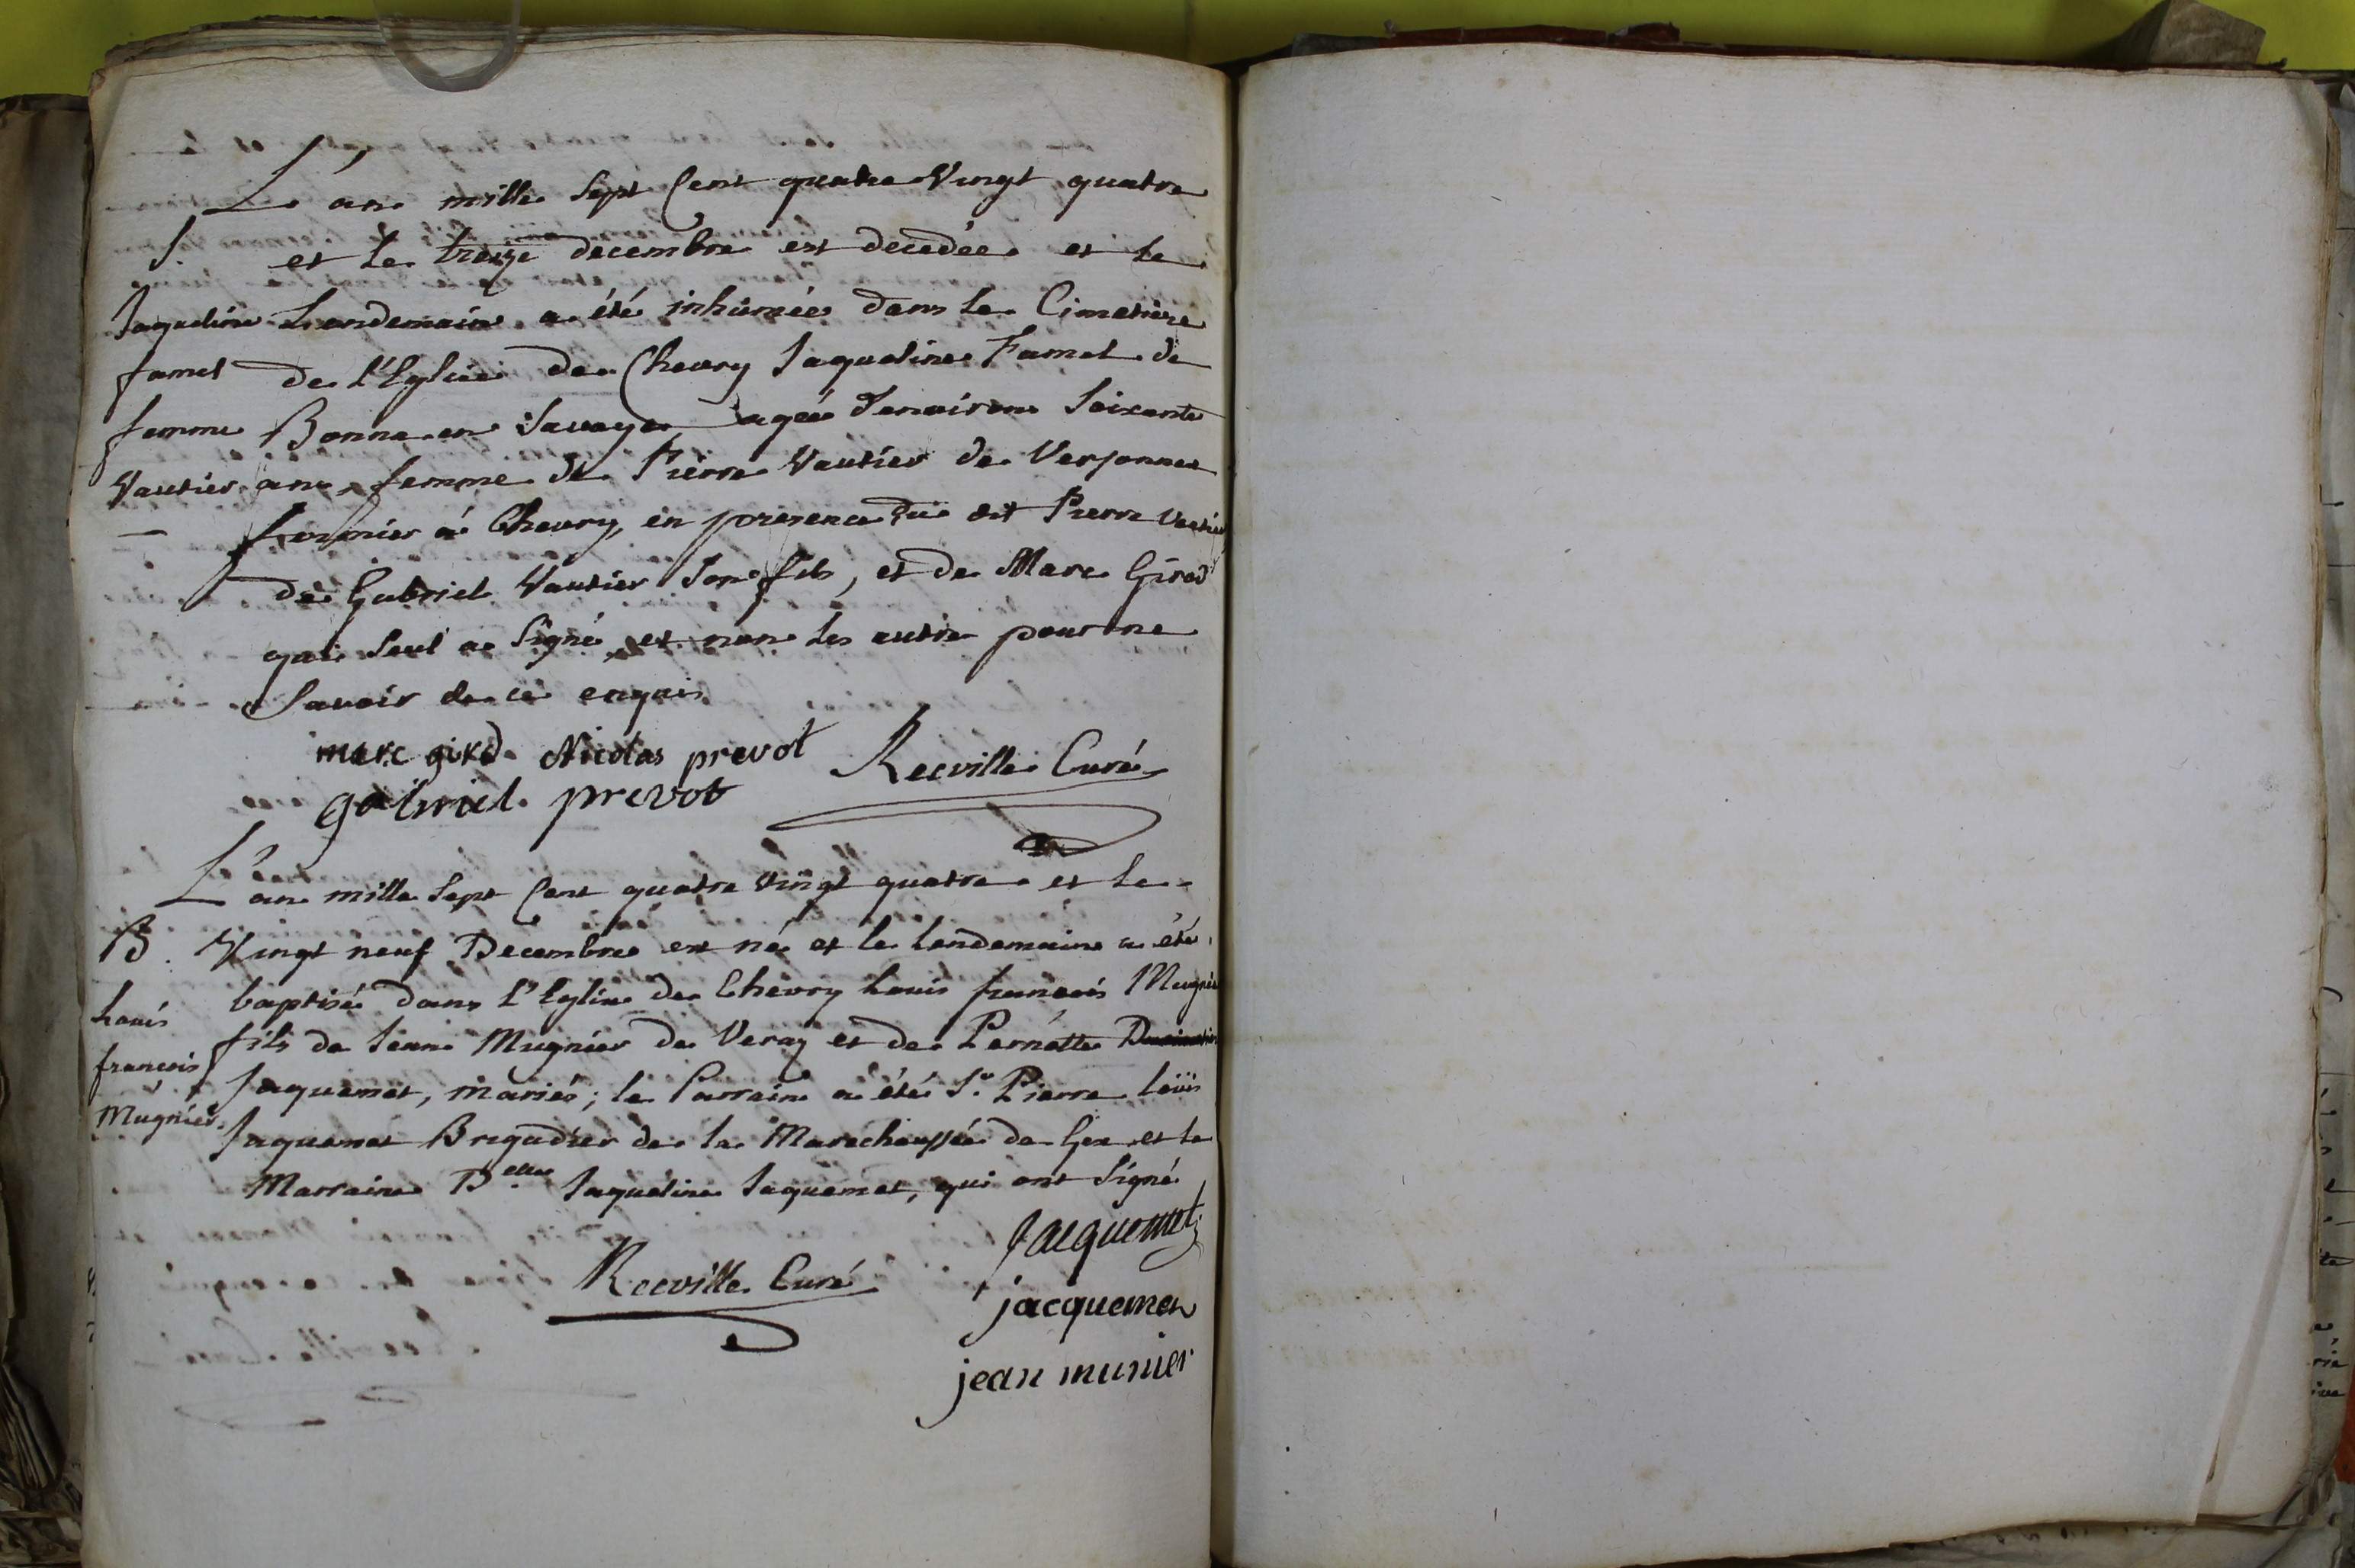 L'an mille Sept Cent quatre Vingt quatre
S. et le treize decembre est decedée et le
Jaqueline Lendemain a été inhumée dans le Cimetière
famel de l'Eglise de Chevry Jaqueline Famel de
femme Bonne en Savoye agée d'environ Soixante
Vautier ans, femme de Pierre Vautier de Versonnex
fermier à Chevry, en presence du dit Pierre Vautier
de Gabriel Vautier Son fils, et de Marc Girod
qui Seul a Signé, et non les autre pour ne
Savoir de ce enquis
marc girod Nicolas prevot Recville Curé
gabriel prevot
L'an mille Sept Cent quatre vingt quatre et le
B. Vingt neuf Decembre est né et le lendemain a été
baptisé dans l'Eglise de Chevry Louis françois Mugnier
Louis
fils de Jean Mugnier de Veraz et de Pernette
françois
Jaquemet, mariés; le Parrain a été Sr. Pierre Loüis
Mugnier
Jaquemet Brigadier de la Marechaussée de Gex et la
Marraine Delle Jaqueline Jaquemet, qui ont Signé
Jacquemet
Recville Curé
jacquemet
jean munier